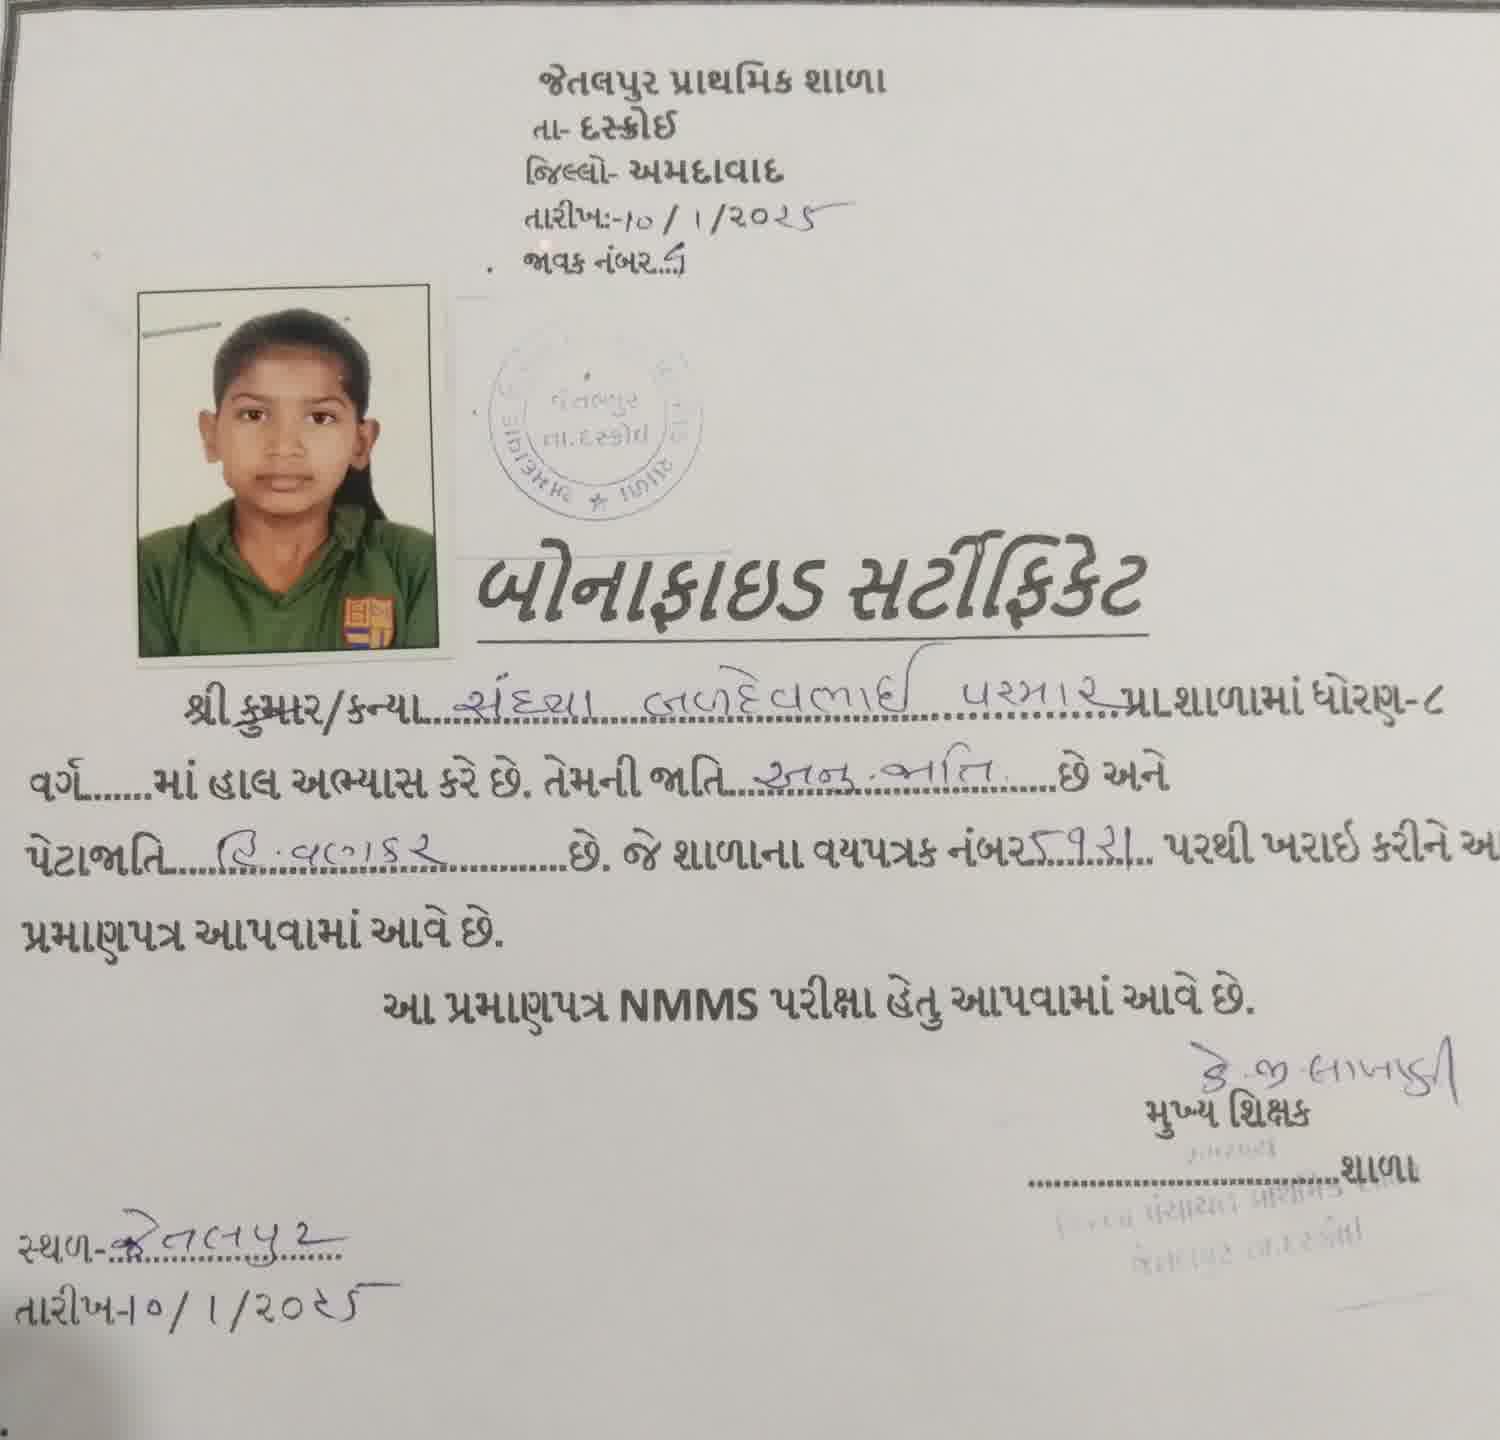 જેતલપુર પ્રાથમિક શાળા
તા- દસ્ક્રોઈ
જિલ્લો- અમદાવાદ
તારીખ:-૧૦/૧/૨૦૨૬
જાવક નંબર....
જેતલપુર
તા.દસ્ક્રોઈ
અમદાવાદ ★ શાળા
બોનાફાઇડ સર્ટીફિકેટ
શ્રી કુમાર/કન્યા....સંધ્યા બળદેવભાઈ પરમાર પ્રા.શાળામાં ધોરણ-૮
વર્ગ.......માં હાલ અભ્યાસ કરે છે. તેમની જાતિ...અનુ.જાતિ......છે અને
પેટાજાતિ....હિ.વણકર............છે. જે શાળાના વયપત્રક નંબર ૬૧૨૧.. પરથી ખરાઇ કરીને આ
પ્રમાણપત્ર આપવામાં આવે છે.
આ પ્રમાણપત્ર NMMS પરીક્ષા હેતુ આપવામાં આવે છે.
કે.જી.લાખાણી
મુખ્ય શિક્ષક
..............................શાળા
સ્થળ-જેતલપુર
તારીખ-૧૦/૧/૨૦૨૬